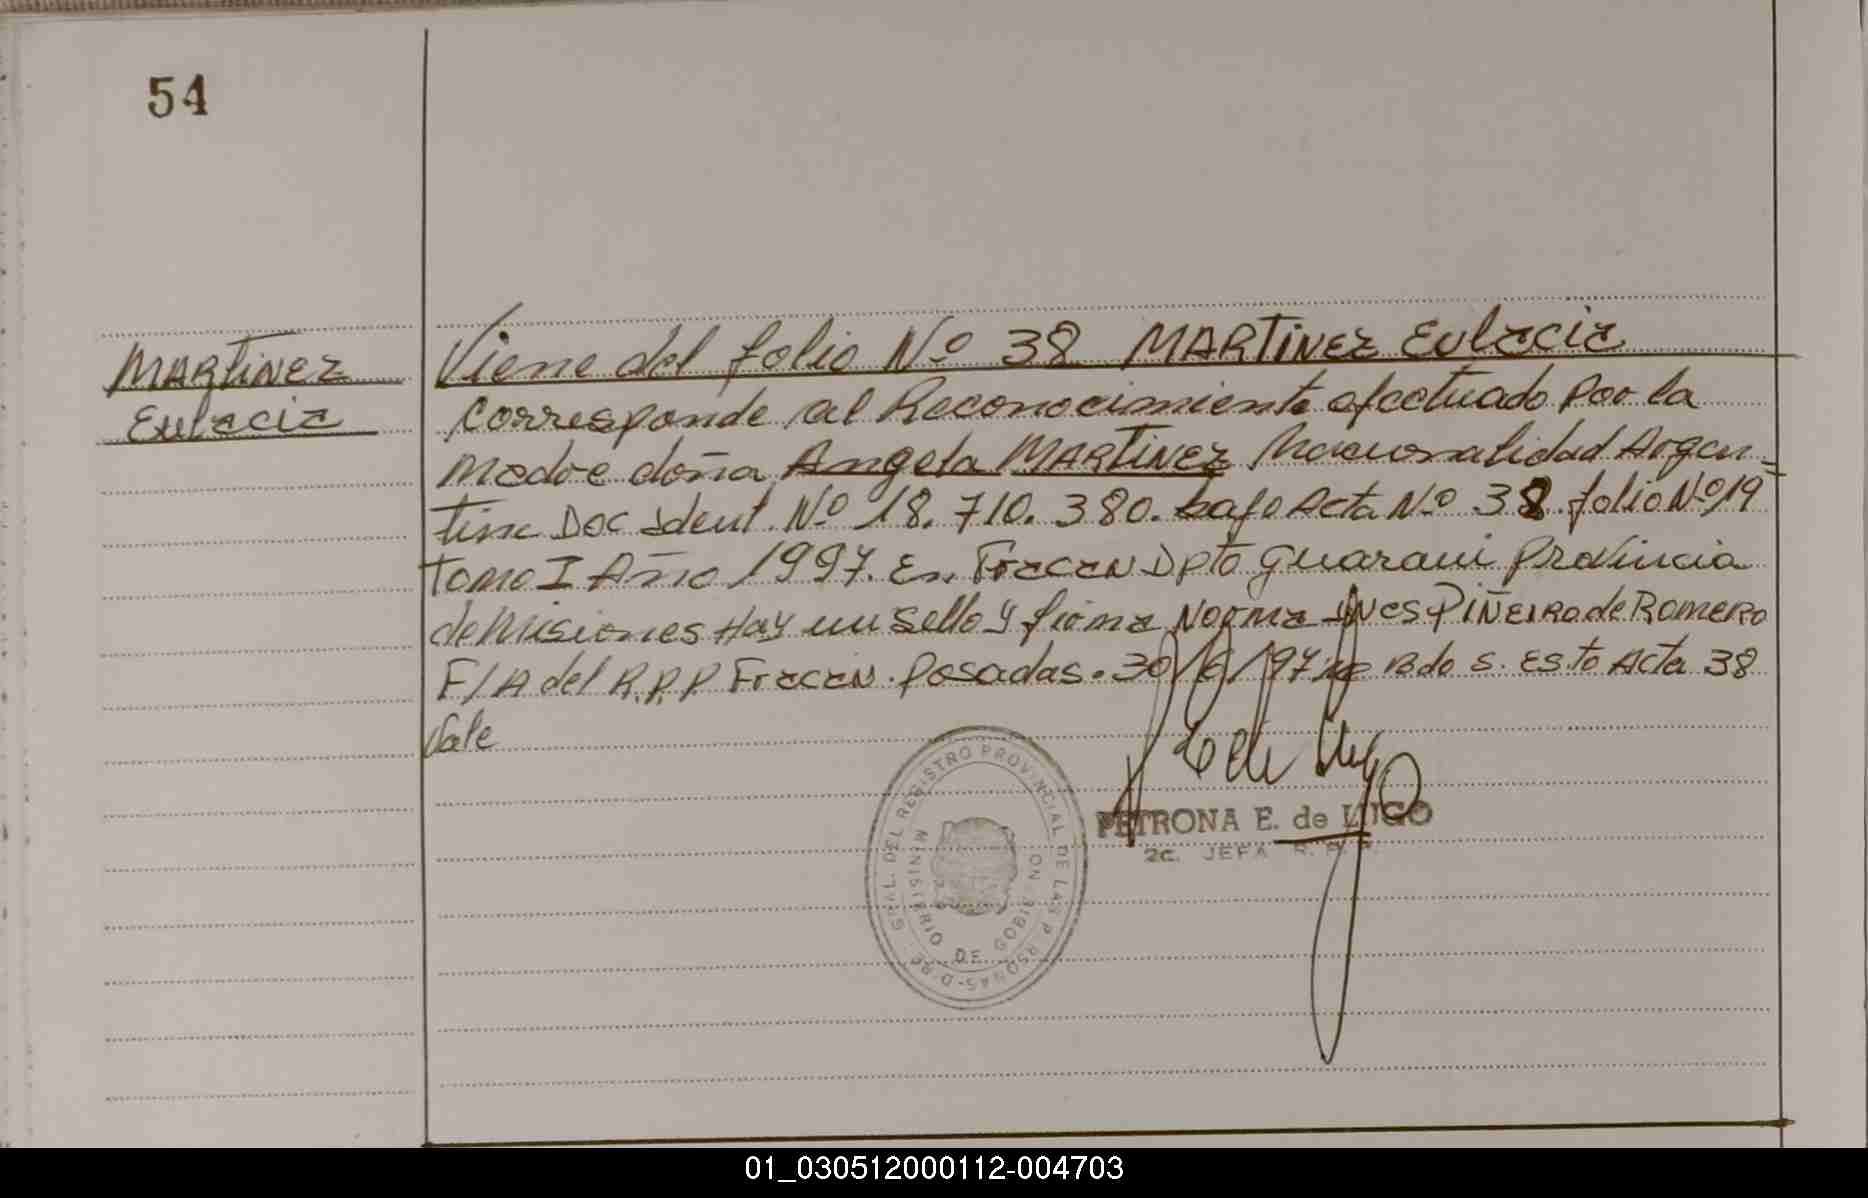 54
MARTINEZ
Eulacia
Viene del folio Nº 38 MARTINEZ Eulacia
corresponde al Reconocimiento efectuado por la
madre doña Angela MARTINEZ Nacionalidad Argen-
tina Doc Ident. Nº 18.710.380. bajo Acta Nº 38. folio Nº 19
Tomo I Año 1997. En Fracan Dpto Guarani Provincia
de Misiones Hay un sello y firma Norma Ines PIÑEIRO de ROMERO
F/A del R.P.P Fracan. Posadas. 30/6/97 Bdo s. Es.to Acta 38
Vale
PETRONA E. de LUGO
2a. JEFA R.P.P.
GRAL. DEL REGISTRO PROVINCIAL DE LAS P RSONAS-D RE
MINISTERIO DE GOBIERNO
01_030512000112-004703